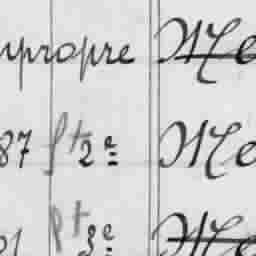 mpropre Me
87 pt 2e Me
pt 3e Me